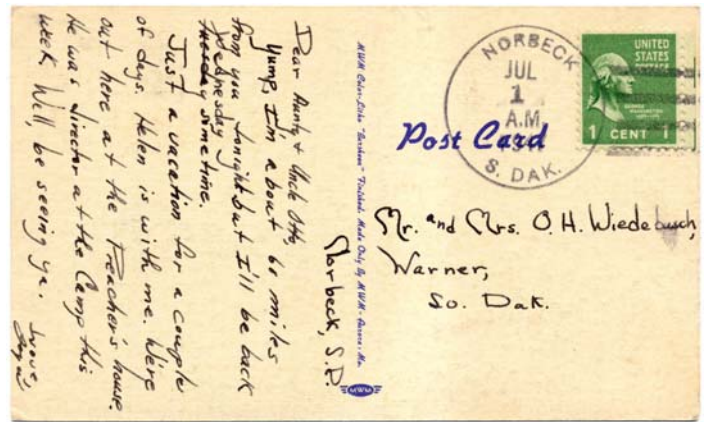 Norbeck, S.D.
Dear Aunty & Uncle Otto,
Yump, I'm about 60 miles
from you tonight but I'll be back
Wednesday
Tuesday sometime.
Just a vacation for a couple
of days. Helen is with me. We're
out here at the Preacher's house.
He was director at the Camp this
week. Well, be seeing ya.
Love,
MWM Color-Litho
Finished. Made Only By MWM - Aurora, Mo.
MWM
NORBECK
JUL
1
A.M.
S. DAK.
UNITED
STATES
POSTAGE
1 CENT 1
Post Card
Mr. and Mrs. O. H. Wiedebusch,
Warner,
So. Dak.